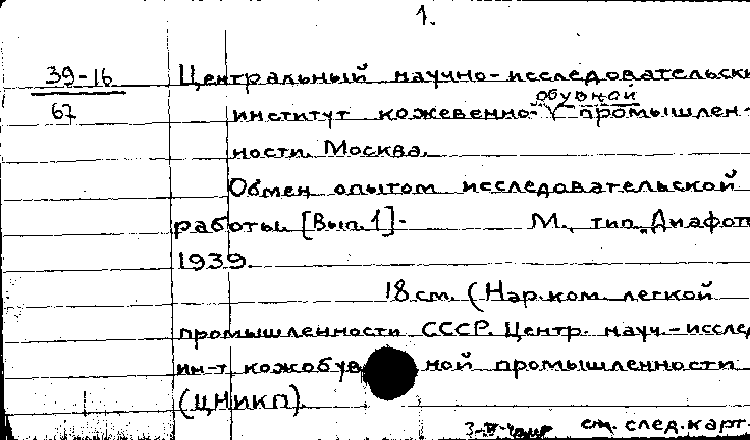 1.
39-16
67
Центральный научно-исследовательски
обувной
институт кожевенно- V промышлен-
ности. Москва.
Обмен опытом исследовательской
работы. [Вып. 1]-  М., тип. „Диафот
1939.
18 см. (Нар.ком. легкой
промышленности СССР. Центр. науч.-исслед
ин-т кожобув ной промышленности
(ЦНИКП).
см. след. карт.